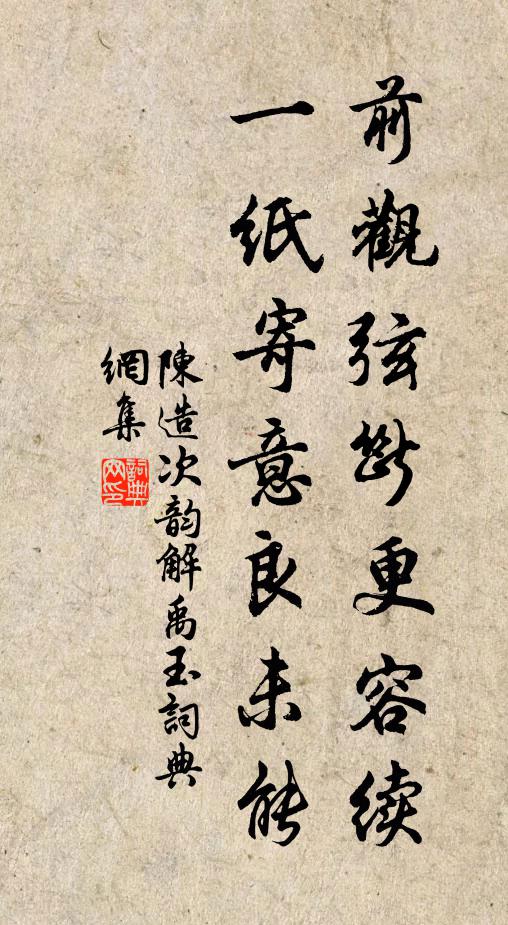 前觀弦斷更容續
一紙寄意良未能
陳造次韵解禹玉詞典
網集
詞典
网印